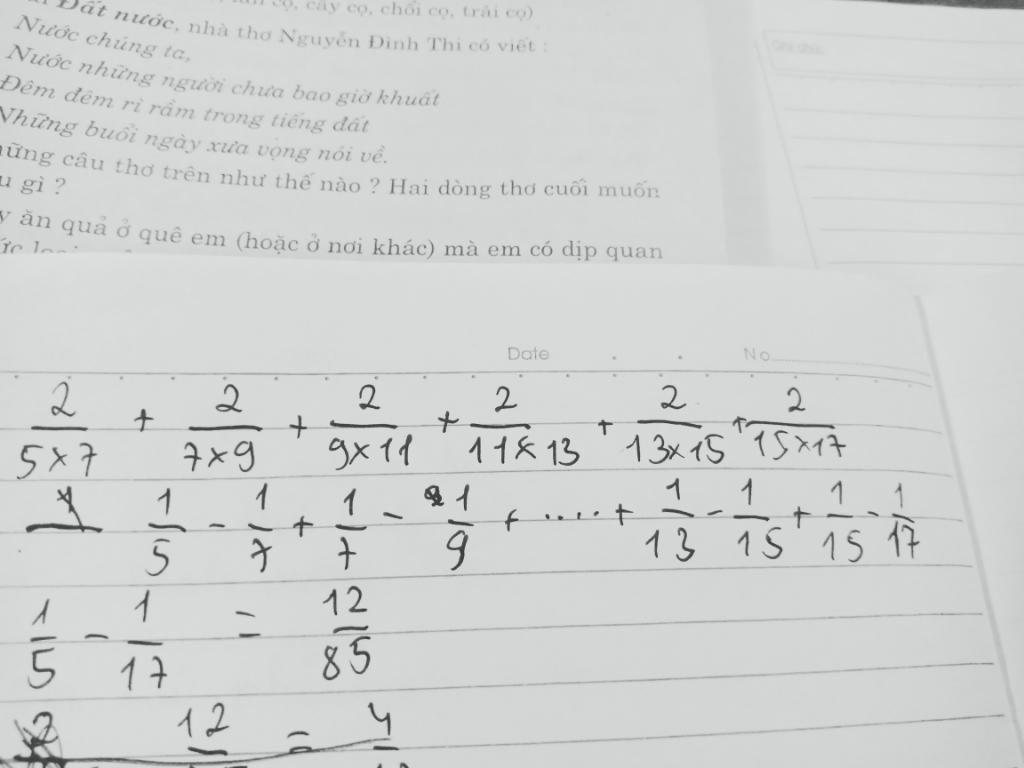 cọ, cây cọ, chổi cọ, trái cọ)
Đất nước, nhà thơ Nguyễn Đình Thi có viết :
Nước chúng ta,
Nước những người chưa bao giờ khuất
Đêm đêm rì rầm trong tiếng đất
Những buổi ngày xưa vọng nói về.
những câu thơ trên như thế nào ? Hai dòng thơ cuối muốn
gì ?
ăn quả ở quê em (hoặc ở nơi khác) mà em có dịp quan
Date . . No
2/(5×7) + 2/(7×9) + 2/(9×11) + 2/(11×13) + 2/(13×15) + 2/(15×17)
1/5 - 1/7 + 1/7 - 1/9 + .... + 1/13 - 1/15 + 1/15 - 1/17
1/5 - 1/17 = 12/85
12 = 4